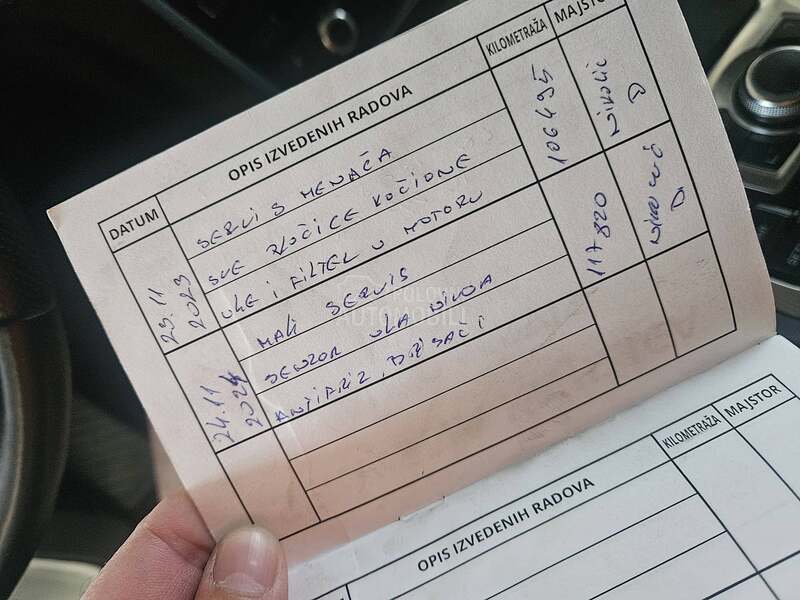 DATUM OPIS IZVEDENIH RADOVA KILOMETRAŽA MAJSTOR
25.11 2023 SERVIS MENAČA 106495 NIKOLIĆ D
SVE PLOČICE KOČIONE
ULE I FILTER U MOTORU
24.11 2024 MALI SERVIS 117820 D
SENZOR ULA NIVOA
ANTIFRIZ, BRISAČI
POLOVNI AUTOMOBILI
OPIS IZVEDENIH RADOVA KILOMETRAŽA MAJSTOR